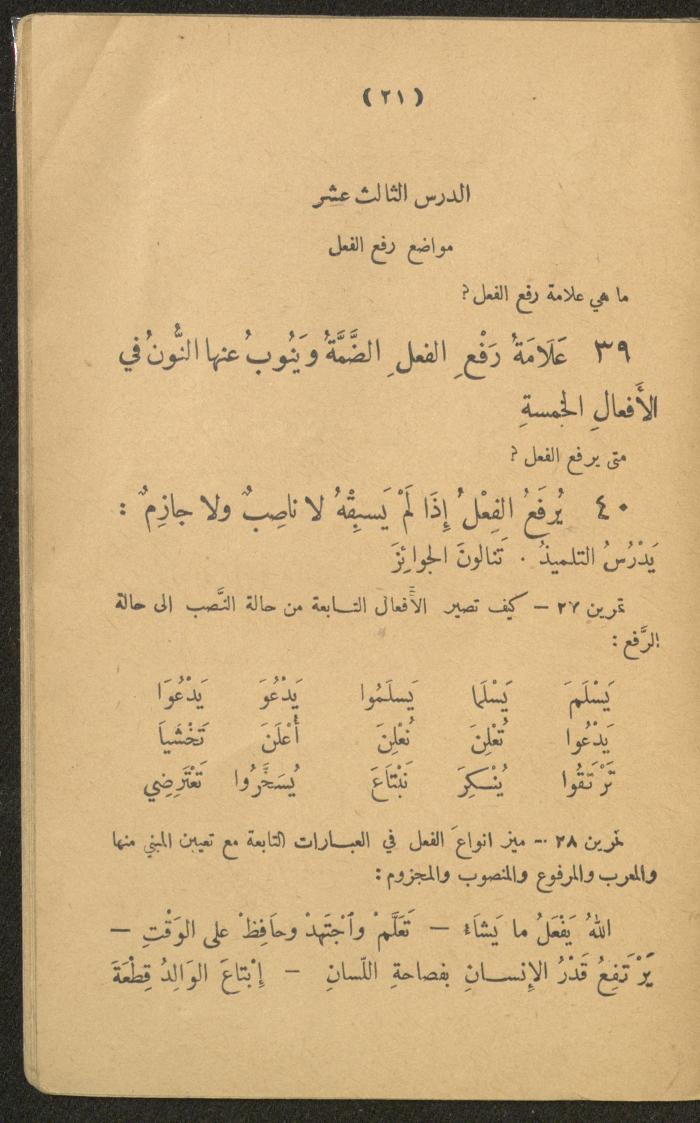 (٢١)
الدرس الثالث عشر
مواضع رفع الفعل
ما هي علامة رفع الفعل؟
٣٩ عَلَامَةُ رَفْعِ الفعلِ الضَّمَّةُ وَيَنُوبُ عنها النُّونُ في
الأَفعالِ الخمسةِ
متى يرفع الفعل؟
٤٠ يُرفَعُ الفِعْلُ إِذَا لَمْ يَسبِقْهُ لا ناصِبٌ ولا جازِمٌ :
يَدْرُسُ التلميذُ . تَنالونَ الجوائِزَ
تمرين ٢٧ – كيف تصير الأفعال التابعة من حالة النَّصب الى حالة
الرَّفع :
يَسْلَمَ يَسْلَما يَسلَمُوا يَدْعُوَ يَدْعُوَا
يَدْعُوا تُعْلِنَ نُعْلِنَ أُعْلَنَ تَخْشَيا
تَرْتَقُوا يُنْسكِرَ نَبْتَاعَ يُسَخَّرُوا تَعْتَرِضِي
تمرين ٢٨ – ميز انواعَ الفعل في العبارات التابعة مع تعيين المبني منها
والمعرب والمرفوع والمنصوب والمجزوم :
اللهُ يَفْعَلُ ما يَشَاءُ – تَعَلَّمْ وٱجْتَهِدْ وحَافِظْ على الوَقْتِ –
يَرْتَفِعُ قَدْرُ الإِنسانِ بفصاحةِ اللّسانِ – إِبْتاعَ الوَالِدُ قِطْعَةَ